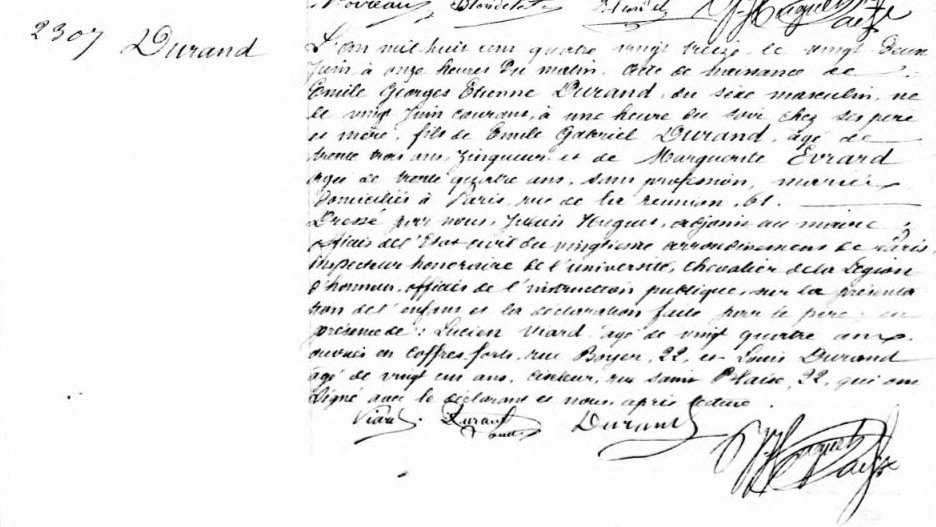 2307 Durand
L'an mil huit cent quatre vingt treize, le vingt deux
Juin, à onze heures du matin. Acte de naissance de
Emile Georges Etienne Durand, du sexe masculin, né
le vingt Juin courant, à une heure du soir chez ses père
et mère, fils de Emile Gabriel Durand, âgé de
trente trois ans, zingueur, et de Marguerite Evrard
âgée de trente quatre ans, sans profession, mariés
domiciliés à Paris, rue de la réunion, 61.
Dressé par nous, Hugues, adjoint au maire
officier de l'Etat civil du vingtième arrondissement de Paris,
Inspecteur honoraire de l'université, Chevalier de la Légion
d'honneur, officier de l'instruction publique, sur la présenta
tion de l'enfant et la déclaration faite par le père; en
présence de: Lucien Viard, âgé de vingt quatre ans,
ouvrier en coffres forts, rue Boyer, 22, et Louis Durand
âgé de vingt un ans, ciseleur, rue saint Blaise, 22, qui ont
signé avec le déclarant et nous, après lecture.
Viard. Durand Durand